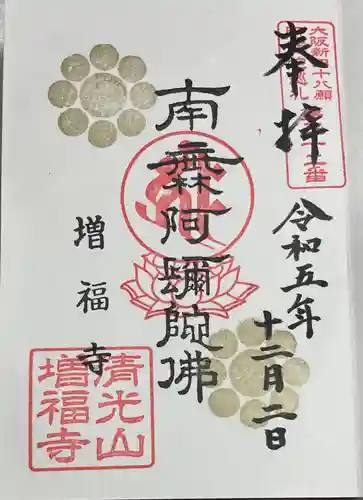 奉拝
大阪新四十八願
令和五年
十二月二日
南無阿彌陀佛
増福寺
清光山
増福寺